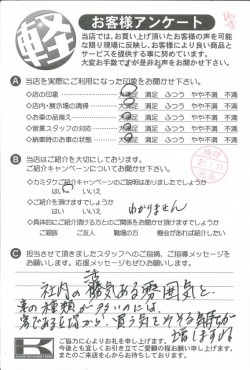 軽
お客様アンケート
当店では、お買い上げ頂いたお客様の声を可能
な限り現場に反映し、お客様により良い商品と
サービスを提供する事に努めています。
大変お手数ですが是非お声をお聞かせ下さい。
A 当店を実際にご利用になった印象をお聞かせ下さい。
◇店の印象 満足 ふつう やや不満 不満
◇店内・展示場の清掃 満足 ふつう やや不満 不満
◇お車の品揃え 満足 ふつう やや不満 不満
◇営業スタッフの対応 満足 ふつう やや不満 不満
◇納車時のお車の状態 満足 ふつう やや不満 不満
B 当店はご紹介を大切にしております。
ご紹介キャンペーンについてお聞かせ下さい。
◇カミタケご紹介キャンペーンのご説明はありましたでしょうか
はい いいえ
◇ご紹介を頂けますでしょうか
はい いいえ わかりません
◇具体的にご紹介頂ける方とのご関係をお聞かせ頂けますでしょうか
ご親族 ご友人 職場の方 機会があれば紹介したい
C 担当させて頂きましたスタッフへのご指摘、ご指導メッセージを
お願いします。応援メッセージもぜひお願いします。
社内の活気ある雰囲気と、
車の種類が多いのには、
買う気
増しますね
K
ご協力に心よりお礼を申し上げます。
今後とも宜しくお引き立てご愛顧の程お願い申し上げます。
またのご来店を心からお待ちしております。